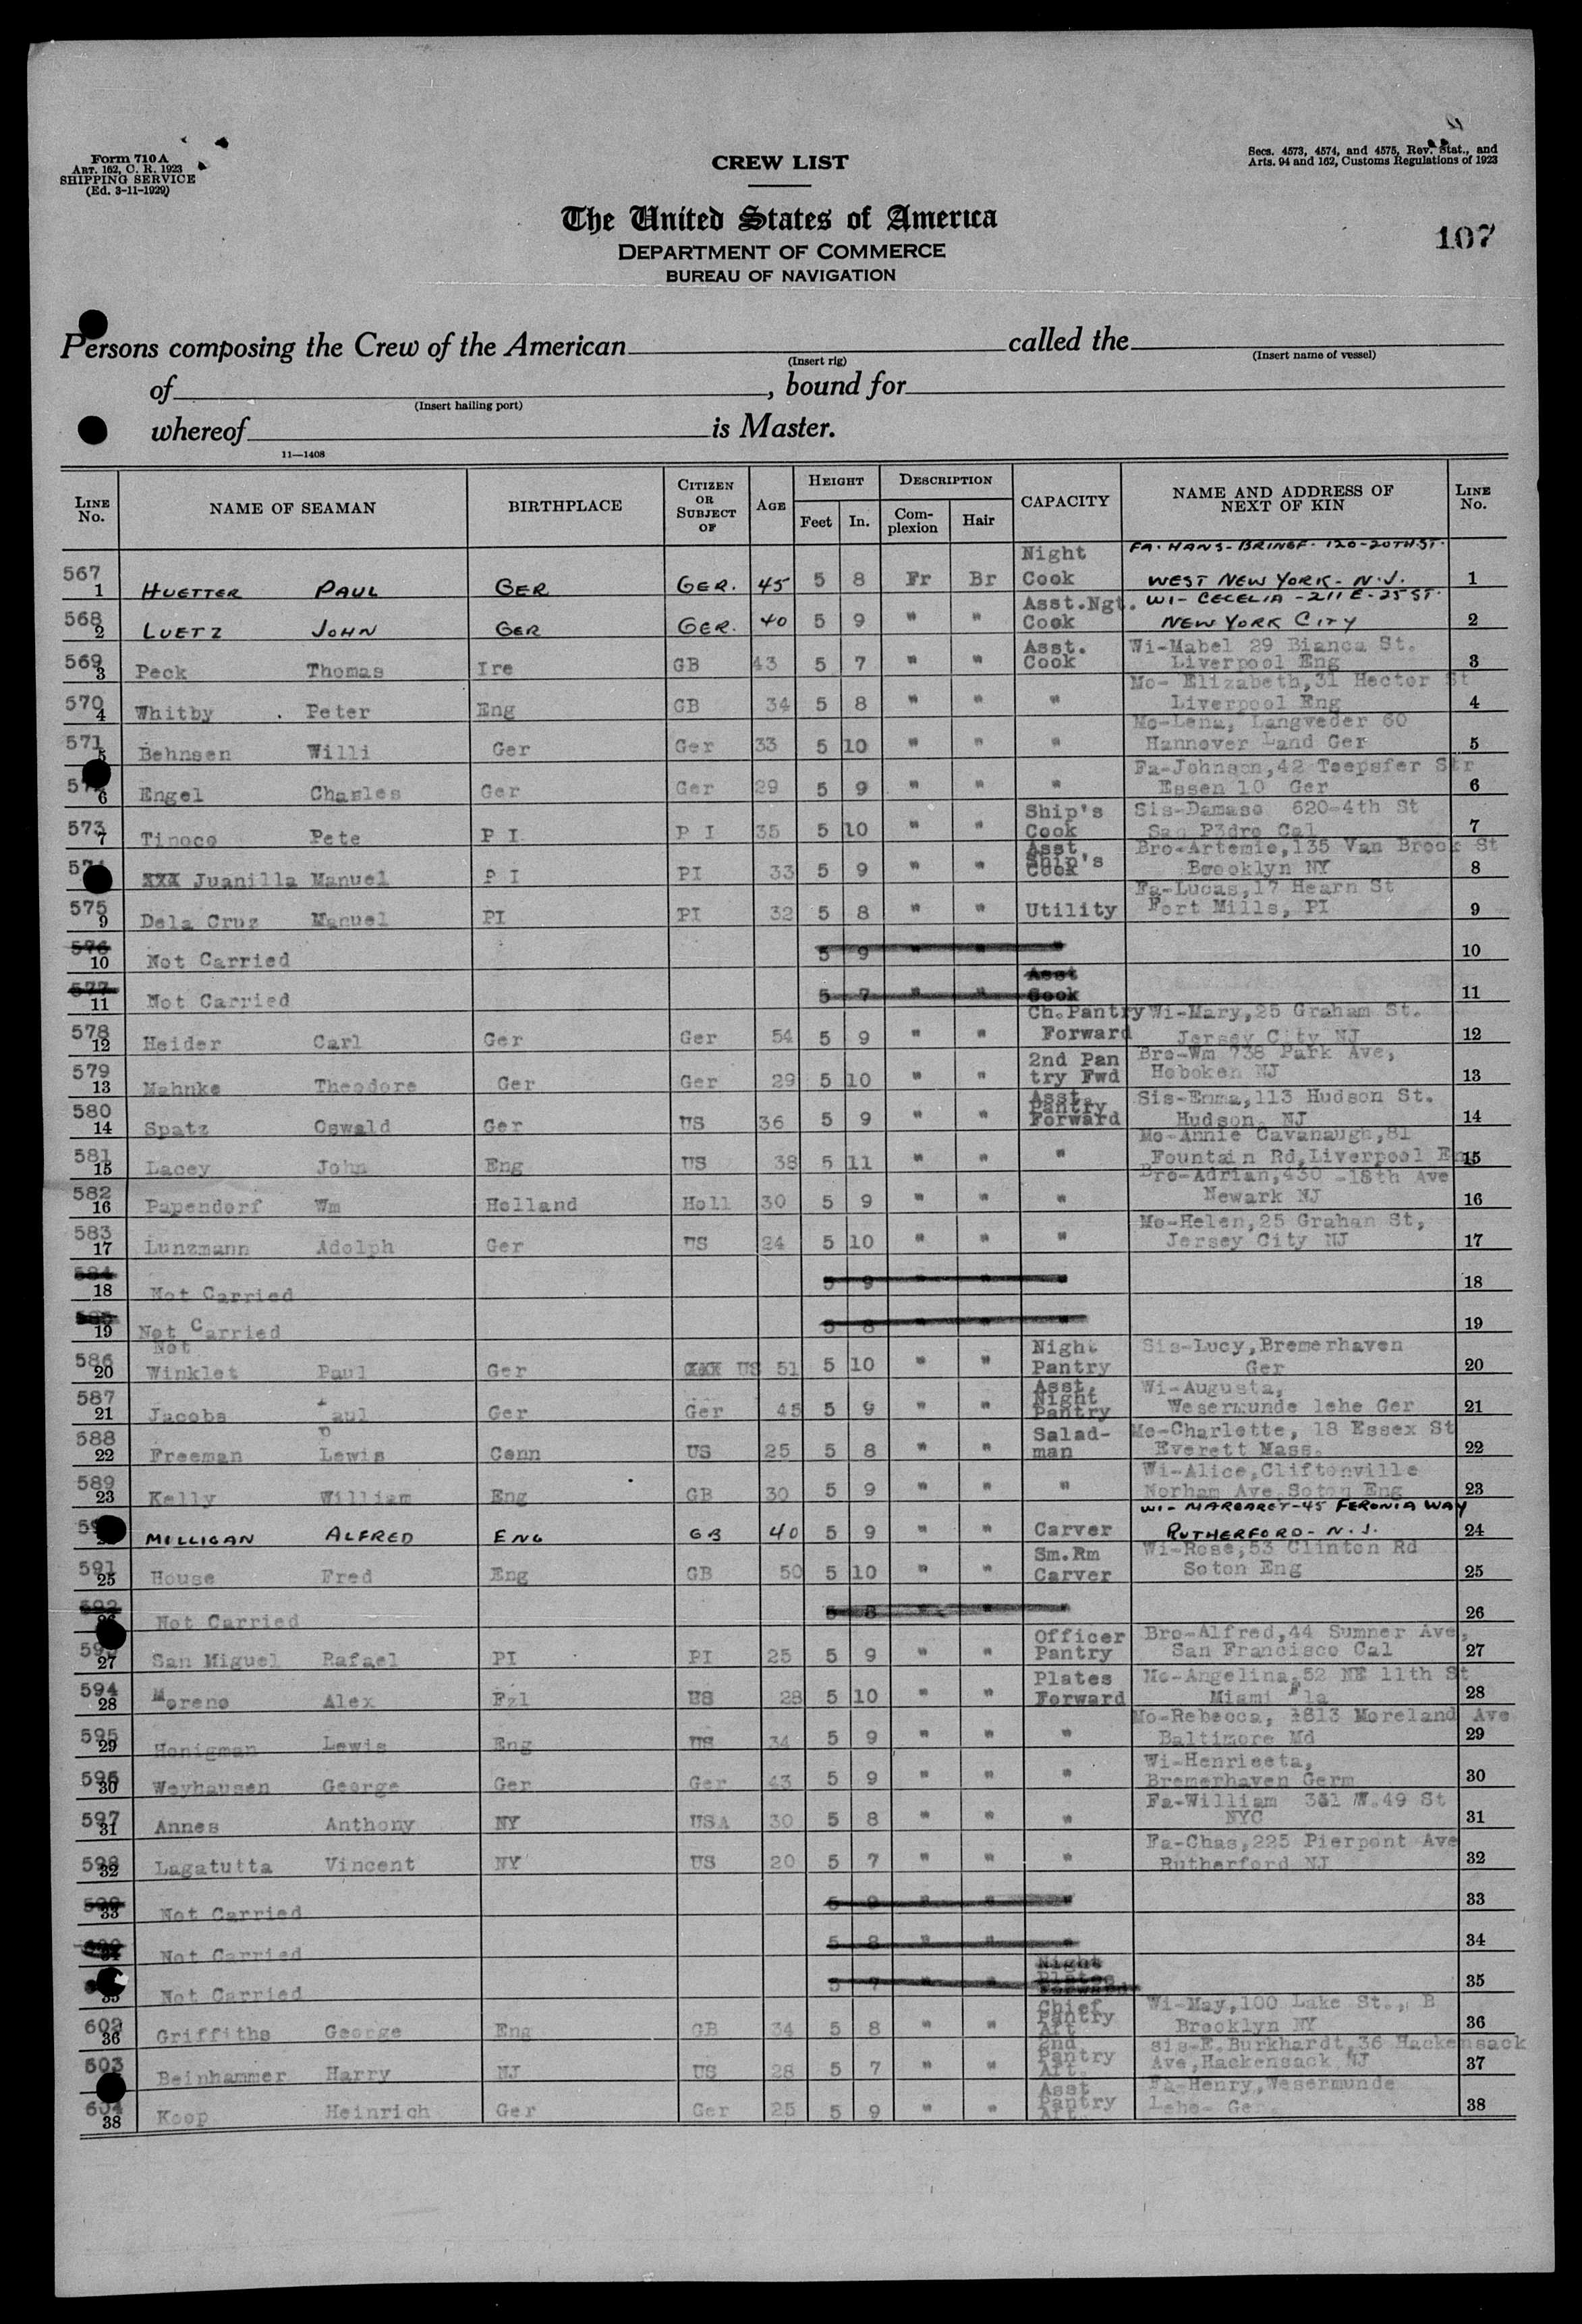 Form 710 A
ART. 162, C. R. 1923
SHIPPING SERVICE
(Ed. 3-11-1929)
CREW LIST
Secs. 4573, 4574, and 4575, Rev. Stat., and
Arts. 94 and 162, Customs Regulations of 1923
The United States of America
DEPARTMENT OF COMMERCE
BUREAU OF NAVIGATION
107
Persons composing the Crew of the American called the
(Insert rig) (Insert name of vessel)
of , bound for
(Insert hailing port)
whereof is Master.
11—1408
LINE No. NAME OF SEAMAN BIRTHPLACE CITIZEN OR SUBJECT OF AGE HEIGHT Feet In. DESCRIPTION Complexion Hair CAPACITY NAME AND ADDRESS OF NEXT OF KIN LINE No.
567 1 HUETTER PAUL GER GER. 45 5 8 Fr Br Night Cook FA. HANS- 120-20TH ST. WEST NEW YORK- N.J. 1
568 2 LUETZ JOHN GER GER. 40 5 9 " " Asst.Ngt. Cook WI- CECELIA -211 E-25 ST. NEW YORK CITY 2
569 3 Peck Thomas Ire GB 43 5 7 " " Asst. Cook Wi-Mabel 29 Bianca St. Liverpool Eng 3
570 4 Whitby . Peter Eng GB 34 5 8 " " " Mo- Elizabeth,31 Hector St Liverpool Eng 4
571 5 Behnsen Willi Ger Ger 33 5 10 " " " Mo-Lena, Langveder 60 Hannover Land Ger 5
57 6 Engel Charles Ger Ger 29 5 9 " " " Fa-Johnson,42 Toepsfer Str Essen 10 Ger 6
573 7 Tinoco Pete P I P I 35 5 10 " " Ship's Cook Sis-Damaso 620-4th St San P3dro Cal 7
57 XXX Juanilla Manuel P I PI 33 5 9 " " Asst Ship's Cook Bro-Artemio,135 Van Brook St Brooklyn NY 8
575 9 Dela Cruz Manuel PI PI 32 5 8 " " Utility Fa-Lucas,17 Hearn St Fort Mills, PI 9
576 10 Not Carried 5 9 " " " 10
577 11 Not Carried 5 7 " " Asst Cook 11
578 12 Heider Carl Ger Ger 54 5 9 " " Ch.Pantry Forward Wi-Mary,25 Graham St. Jersey City NJ 12
579 13 Mahnke Theodore Ger Ger 29 5 10 " " 2nd Pan try Fwd Bro-Wm 738 Park Ave, Hoboken NJ 13
580 14 Spatz Oswald Ger US 36 5 9 " " Asst. Pantry Forward Sis-Emma,113 Hudson St. Hudson, NJ 14
581 15 Lacey John Eng US 38 5 11 " " " Mo-Annie Cavanaugh,81 Fountain Rd,Liverpool Eng 15
582 16 Papendorf Wm Holland Holl 30 5 9 " " " Bro-Adrian,430 -18th Ave Newark NJ 16
583 17 Lunzmann Adolph Ger US 24 5 10 " " " Mo-Helen,25 Grahan St, Jersey City NJ 17
584 18 Not Carried 5 9 " " " 18
585 19 Not Carried 5 8 " " " 19
Not
586 20 Winklet Paul Ger XXX US 51 5 10 " " Night Pantry Sis-Lucy,Bremerhaven Ger 20
587 21 Jacobs Paul Ger Ger 45 5 9 " " Asst. Night Pantry Wi-Augusta, Wesermunde lehe Ger 21
588 22 Freeman Lewis Conn US 25 5 8 " " Salad- man Mo-Charlotte, 18 Essex St Everett Mass. 22
589 23 Kelly William Eng GB 30 5 9 " " " Wi-Alice,Cliftonville Norham Ave Soton Eng 23
59 MILLIGAN ALFRED ENG GB 40 5 9 " " Carver WI- MARGARET-45 FERONIA WAY RUTHERFORD- N.J. 24
591 25 House Fred Eng GB 50 5 10 " " Sm.Rm Carver Wi-Rose,53 Clinton Rd Soton Eng 25
592 26 Not Carried 5 8 " " " 26
59 27 San Miguel Rafael PI PI 25 5 9 " " Officer Pantry Bro-Alfred,44 Sumner Ave, San Francisco Cal 27
594 28 Moreno Alex Fzl US 28 5 10 " " Plates Forward Mo-Angelina,52 NE 11th St Miami Fla 28
595 29 Honigman Lewis Eng US 34 5 9 " " " Mo-Rebecca, 1813 Moreland Ave Baltimore Md 29
596 30 Weyhausen George Ger Ger 43 5 9 " " " Wi-Henriseta, Bremerhaven Germ 30
597 31 Annes Anthony NY USA 30 5 8 " " " Fa-William W.49 St NYC 31
598 32 Lagatutta Vincent NY US 20 5 7 " " " Fa-Chas,225 Pierpont Ave Rutherford NJ 32
599 33 Not Carried 5 9 " " " 33
34 Not Carried 5 8 " " " 34
35 Not Carried 5 7 " " Night Plates Forward 35
602 36 Griffiths George Eng GB 34 5 8 " " Chief Pantry Aft Wi-May,100 Lake St., B Brooklyn NY 36
603 Beinhammer Harry NJ US 28 5 7 " " 2nd Pantry Aft. sis-E.Burkhardt,36 Hackensack Ave,Hackensack NJ 37
604 38 Koop Heinrich Ger Ger 25 5 9 " " Asst Pantry Aft Fa-Henry,Wesermunde Lehe- Ger 38